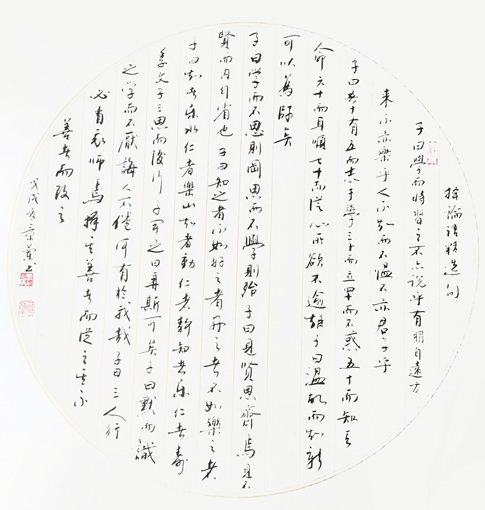 摘論語精選句
子曰學而時習之不亦說乎有朋自遠方
來不亦樂乎人不知而不慍不亦君子乎
子曰吾十有五而志于學三十而立四十而不惑五十而知天
命六十而耳順七十而從心所欲不逾矩子曰溫故而知新
可以為師矣
子曰學而不思則罔思而不學則殆子曰見賢思齊焉見不
賢而內自省也子曰知之者不如好之者好之者不如樂之者
子曰知者乐水仁者樂山知者動仁者靜知者乐仁者壽
季文子三思而後行子聞之曰再斯可矣子曰默而識
之學而不厭誨人不倦何有於我哉子曰三人行
必有我師焉擇其善者而從之其不
善者而改之
戊戌